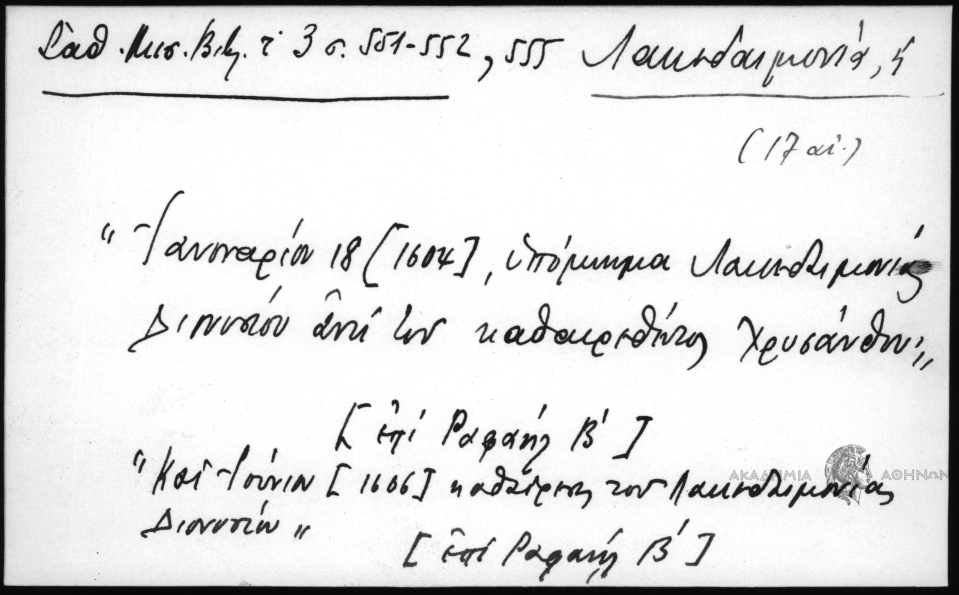 Σαθ. Μεσ. Βιβ. τ 3 σ. 551-552, 555 Λακεδαιμονία, ἡ
(17 αἰ.)
“Ἰανουαρίου 18 [1604], ὑπόμνημα Λακεδαιμονίας
Διονυσίου ἀντί τοῦ καθαιρεθέντος Χρυσάνθου„
[ἐπί Ραφαήλ Β΄]
“Κατ᾽ Ἰούνιον [1606] καθαίρεσις τοῦ Λακεδαιμονίας
Διονυσίου„
[ἐπί Ραφαήλ Β΄]
ΑΚΑΔΗΜΙΑ ΑΘΗΝΩΝ